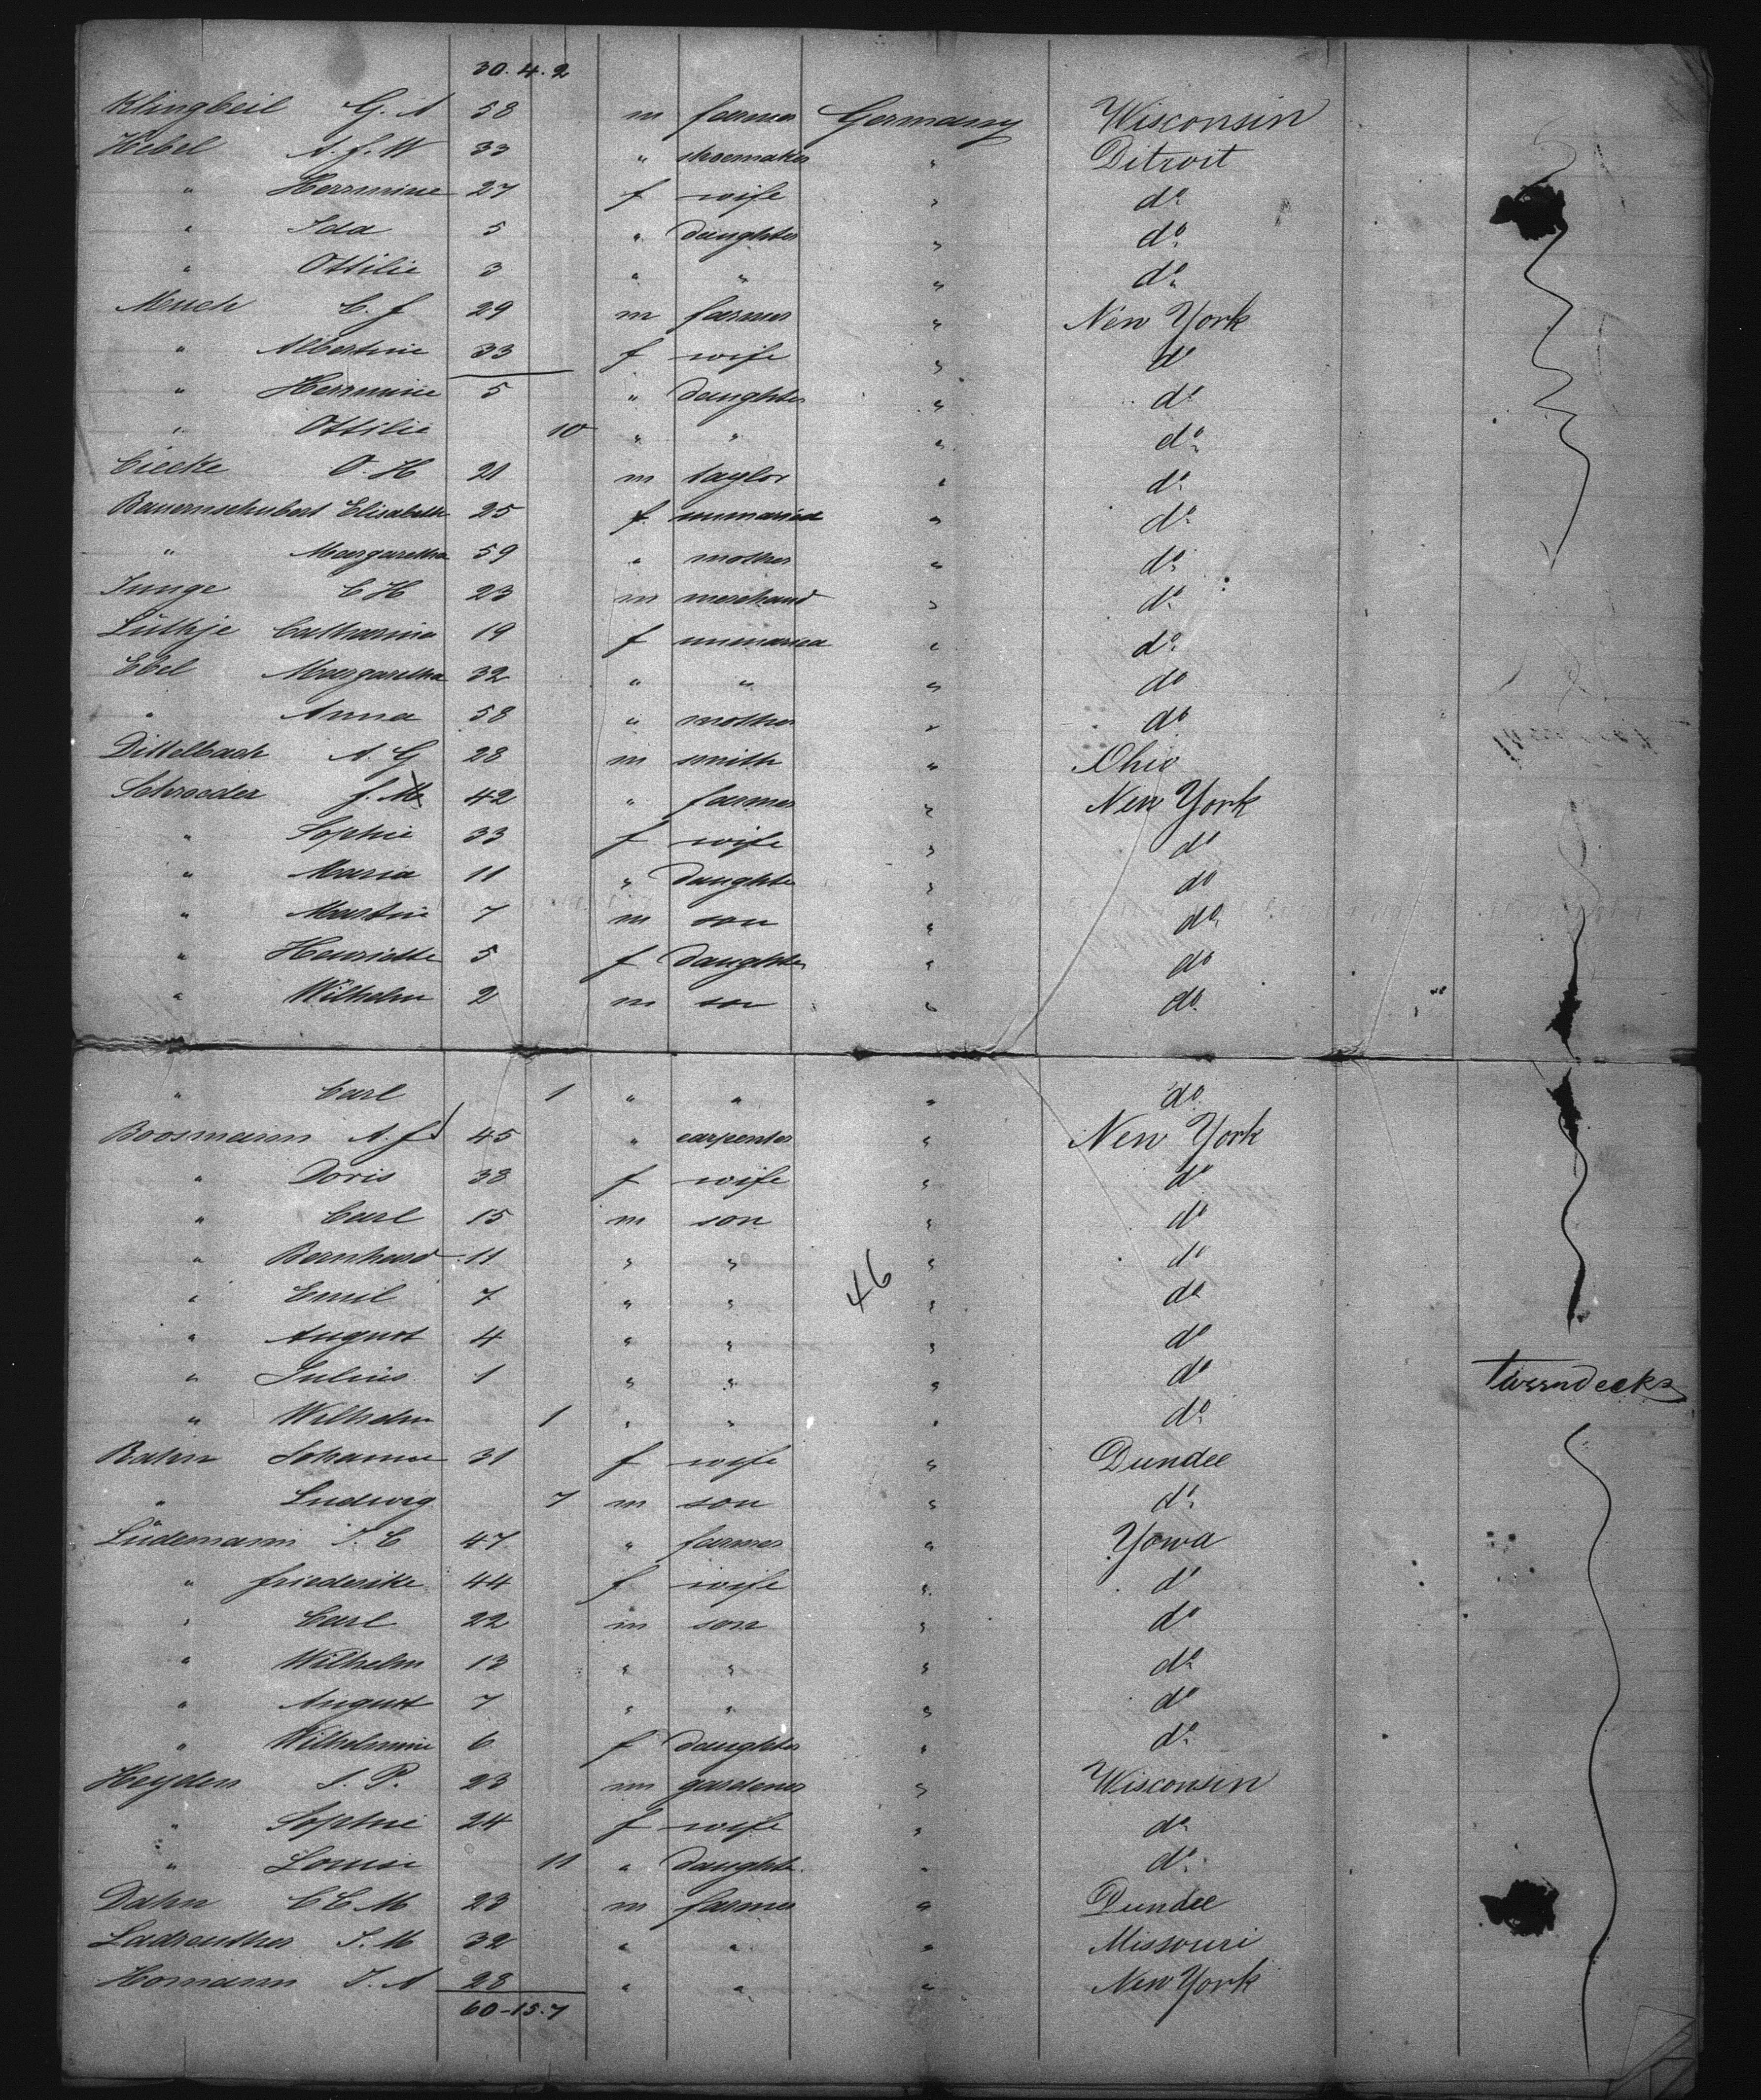 30. 4. 2
Klingbeil G. A 58 m farmer Germany Wisconsin
Hebel A. f. W 33 " shoemaker " Ditroit
" Herrmine 27 f wife " do
" Ida 5 " daughter " do
" Ottilie 3 " " " do
Meuch C. f 29 m farmer " New York
" Albertine 33 f wife " do
" Herrmine 5 " daughter " do
" Ottilie 10 " " " do
Ciecke O. H 21 m taylor " do
Bauernschubert Elisabeth 25 f unmaried " do
" Margaretha 59 " mother " do
Junge C H 23 m merchand " do
Lüthje Catharina 19 f unmaried " do
Ebel Margaretha 32 " " " do
" Anna 58 " mother " do
Dittelbach A. G 28 m smith " Ohio
Schroeder f. M 42 " farmer " New York
" Sophie 33 f wife " do
" Maria 11 " daughter " do
" Martin 7 m son " do
" Henriette 5 f daughter " do
" Wilhelm 2 m son " do
" Carl 1 " " " do
Boosmann A. f 45 " carpenter " New York
" Doris 38 f wife " do
" Carl 15 m son " do
" Bernhard 11 " " " do
46
" Emil 7 " " " do
" August 4 " " " do
" Julius 1 " " " do
Tweendecks
" Wilhelm 1 " " " do
Bahn Johanna 31 f wife " Dundee
" Ludwig 7 m son " do
Lüdemann J. C 47 " farmer " Yowa
" friederike 44 f wife " do
" Carl 22 m son " do
" Wilhelm 13 " " " do
" August 7 " " " do
" Wilhelmine 6 f daughter " do
Heyden J. P. 23 m gardener " Wisconsin
" Sophie 24 f wife " do
" Louise 11 " daughte " do
Dahn C C M 23 m farmer " Dundee
Ladreuther J. M 32 " " " Missouri
Homann J. A 28 " " " New York
60-15.7